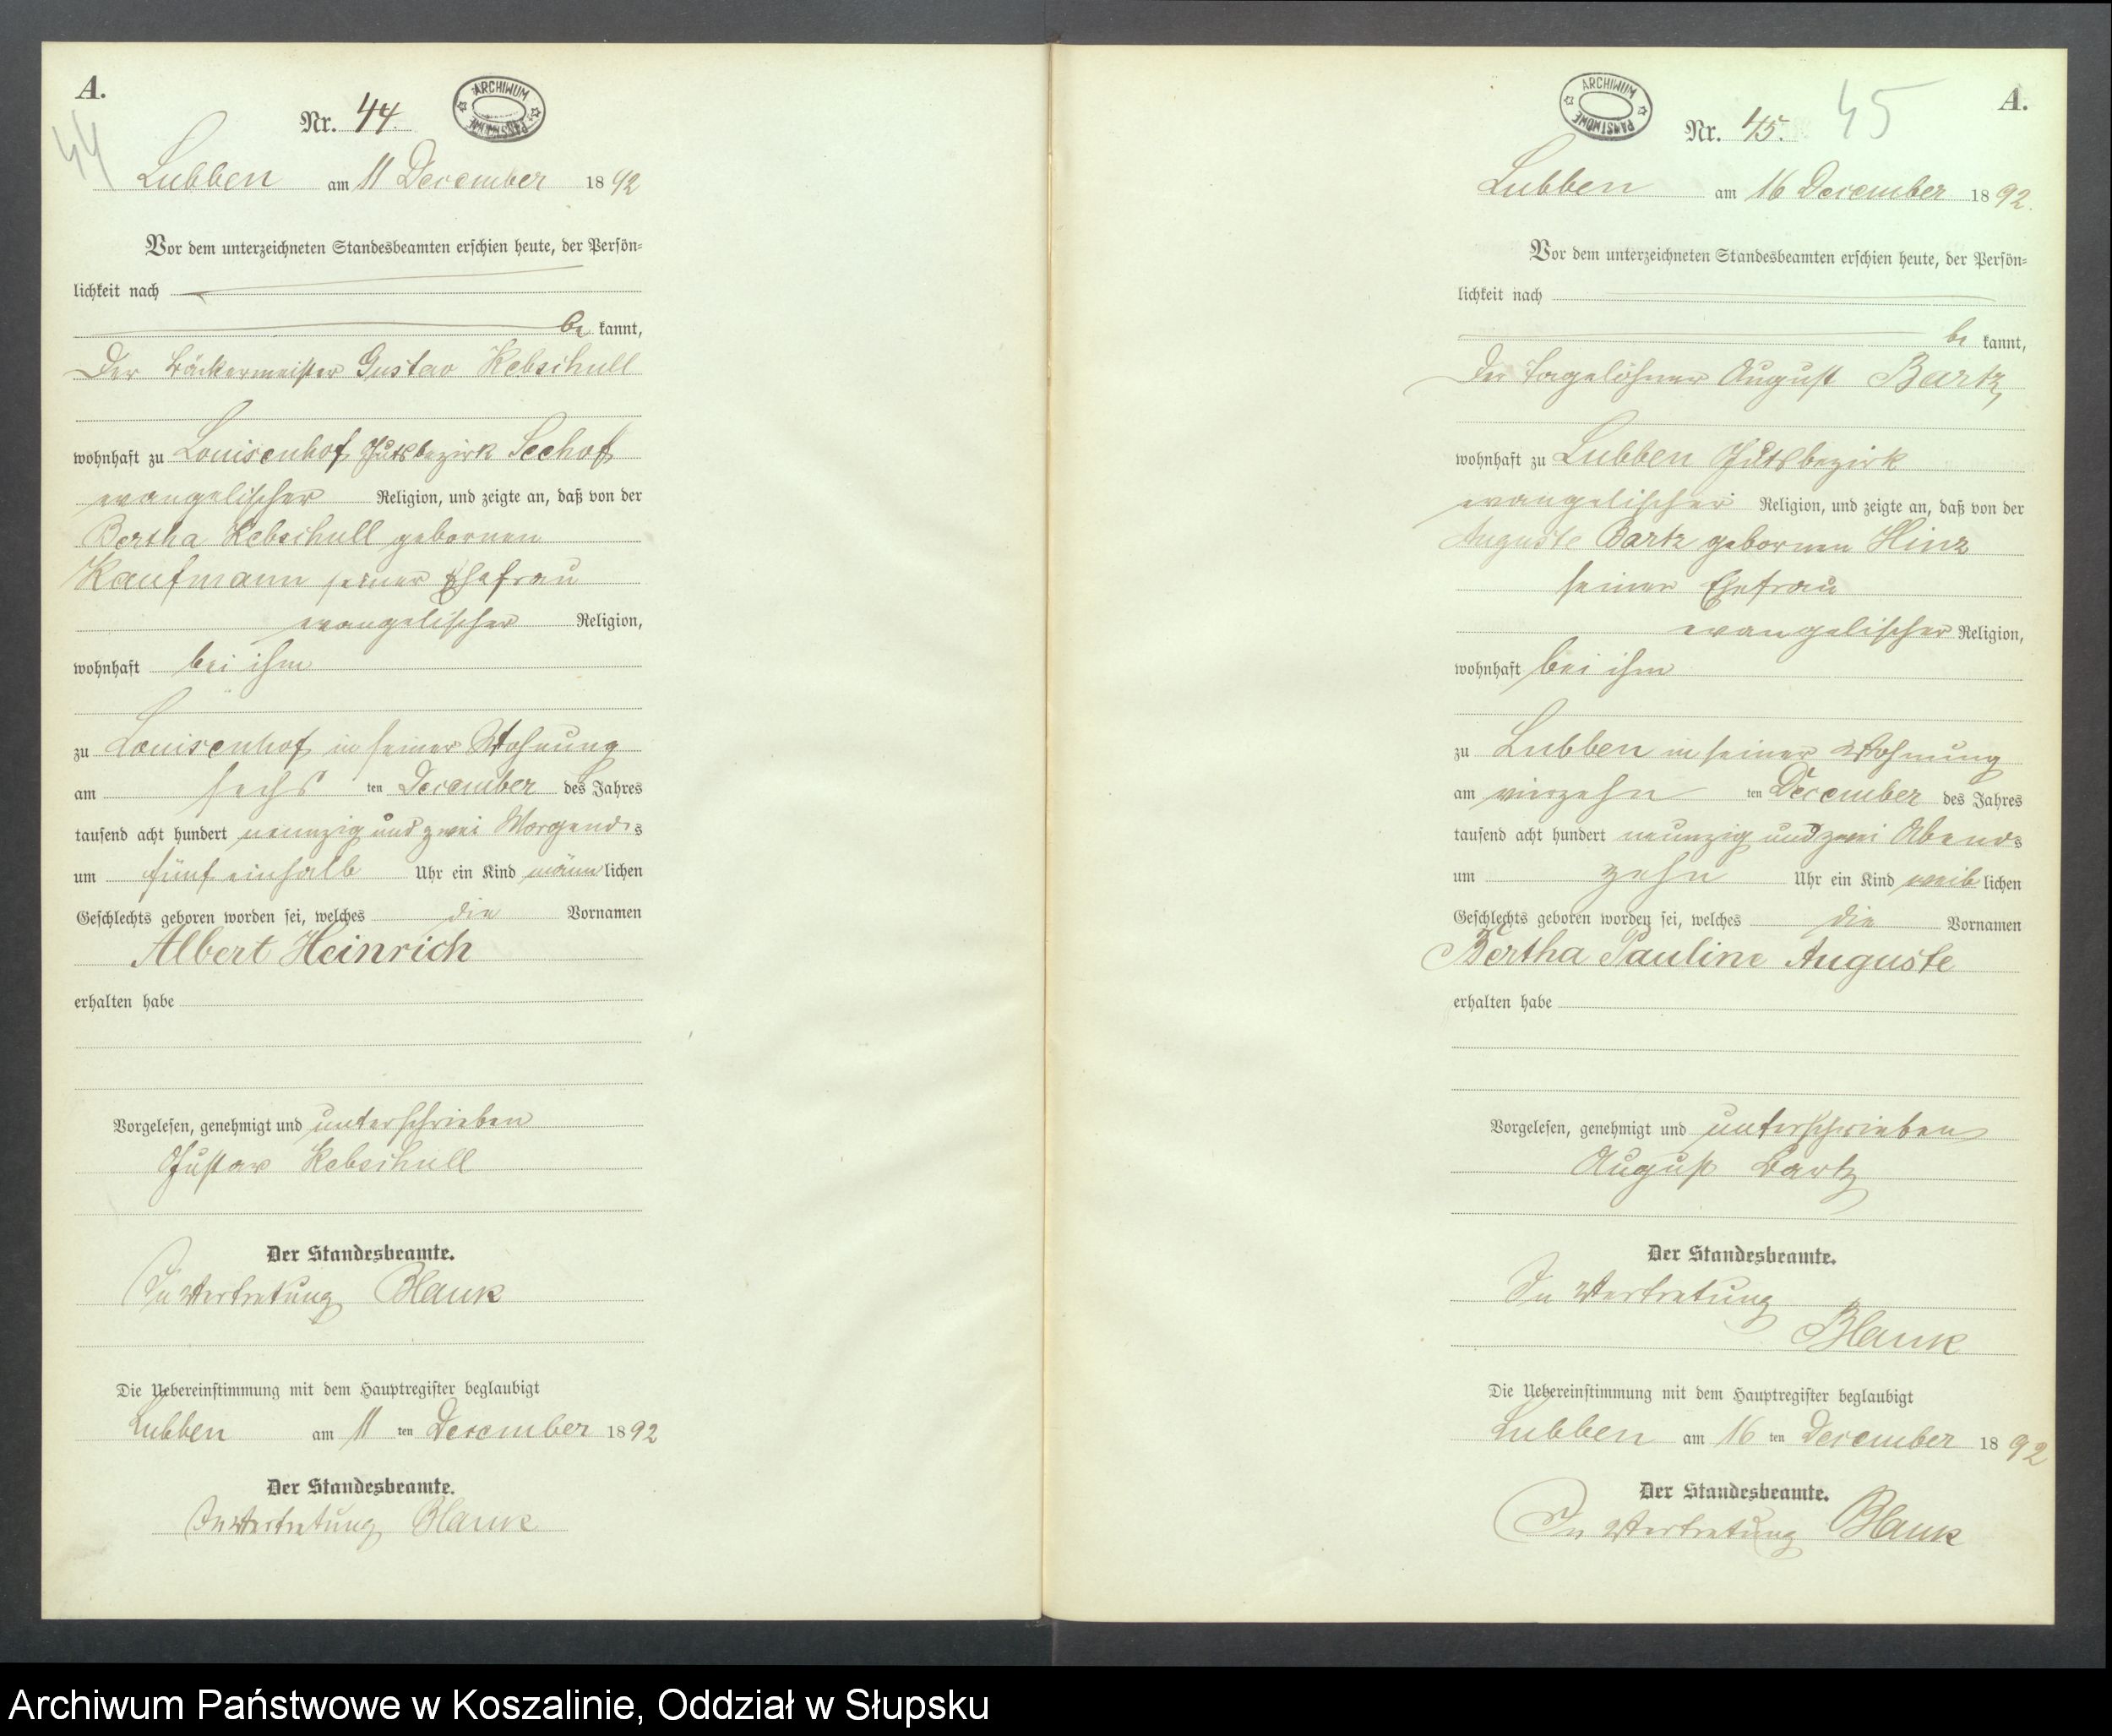 A.
44
Nr. 44.
ARCHIWUM PAŃSTWOWE
Lubben am 11 December 1892
Vor dem unterzeichneten Standesbeamten erschien heute, der Persön-
lichkeit nach
be kannt,
Der Bäckermeister Gustav Rebschull
wohnhaft zu Louisenhof Gutsbezirk Seehof
evangelischer Religion, und zeigte an, daß von der
Bertha Rebschull gebornen
Kaufmann seiner Ehefrau
evangelischer Religion,
wohnhaft bei ihm
zu Louisenhof in seiner Wohnung
am sechs ten December des Jahres
tausend acht hundert neunzig und zwei Morgends
um fünf einhalb Uhr ein Kind männlichen
Geschlechts geboren worden sei, welches die Vornamen
Albert Heinrich
erhalten habe
Vorgelesen, genehmigt und unterschrieben
Gustav Rebschull
Der Standesbeamte.
In Vertretung Blank
Die Uebereinstimmung mit dem Hauptregister beglaubigt
Lubben am 11 ten December 1892
Der Standesbeamte.
In Vertretung Blank
ARCHIWUM PAŃSTWOWE
45
A.
Nr. 45.
Lubben am 16 December 1892.
Vor dem unterzeichneten Standesbeamten erschien heute, der Persön-
lichkeit nach
be kannt,
Der Tagelöhner August Bartz
wohnhaft zu Lubben Gutsbezirk
evangelischer Religion, und zeigte an, daß von der
Auguste Bartz gebornen Hinz
seiner Ehefrau
evangelischer Religion,
wohnhaft bei ihm
zu Lubben in seiner Wohnung
am vierzehn ten December des Jahres
tausend acht hundert neunzig und zwei Abends
um zehn Uhr ein Kind weiblichen
Geschlechts geboren worden sei, welches die Vornamen
Bertha Pauline Auguste
erhalten habe
Vorgelesen, genehmigt und unterschrieben
August Bartz
Der Standesbeamte.
In Vertretung
Blank
Die Uebereinstimmung mit dem Hauptregister beglaubigt
Lubben am 16 ten December 1892
Der Standesbeamte.
In Vertretung Blank
Archiwum Państwowe w Koszalinie, Oddział w Słupsku